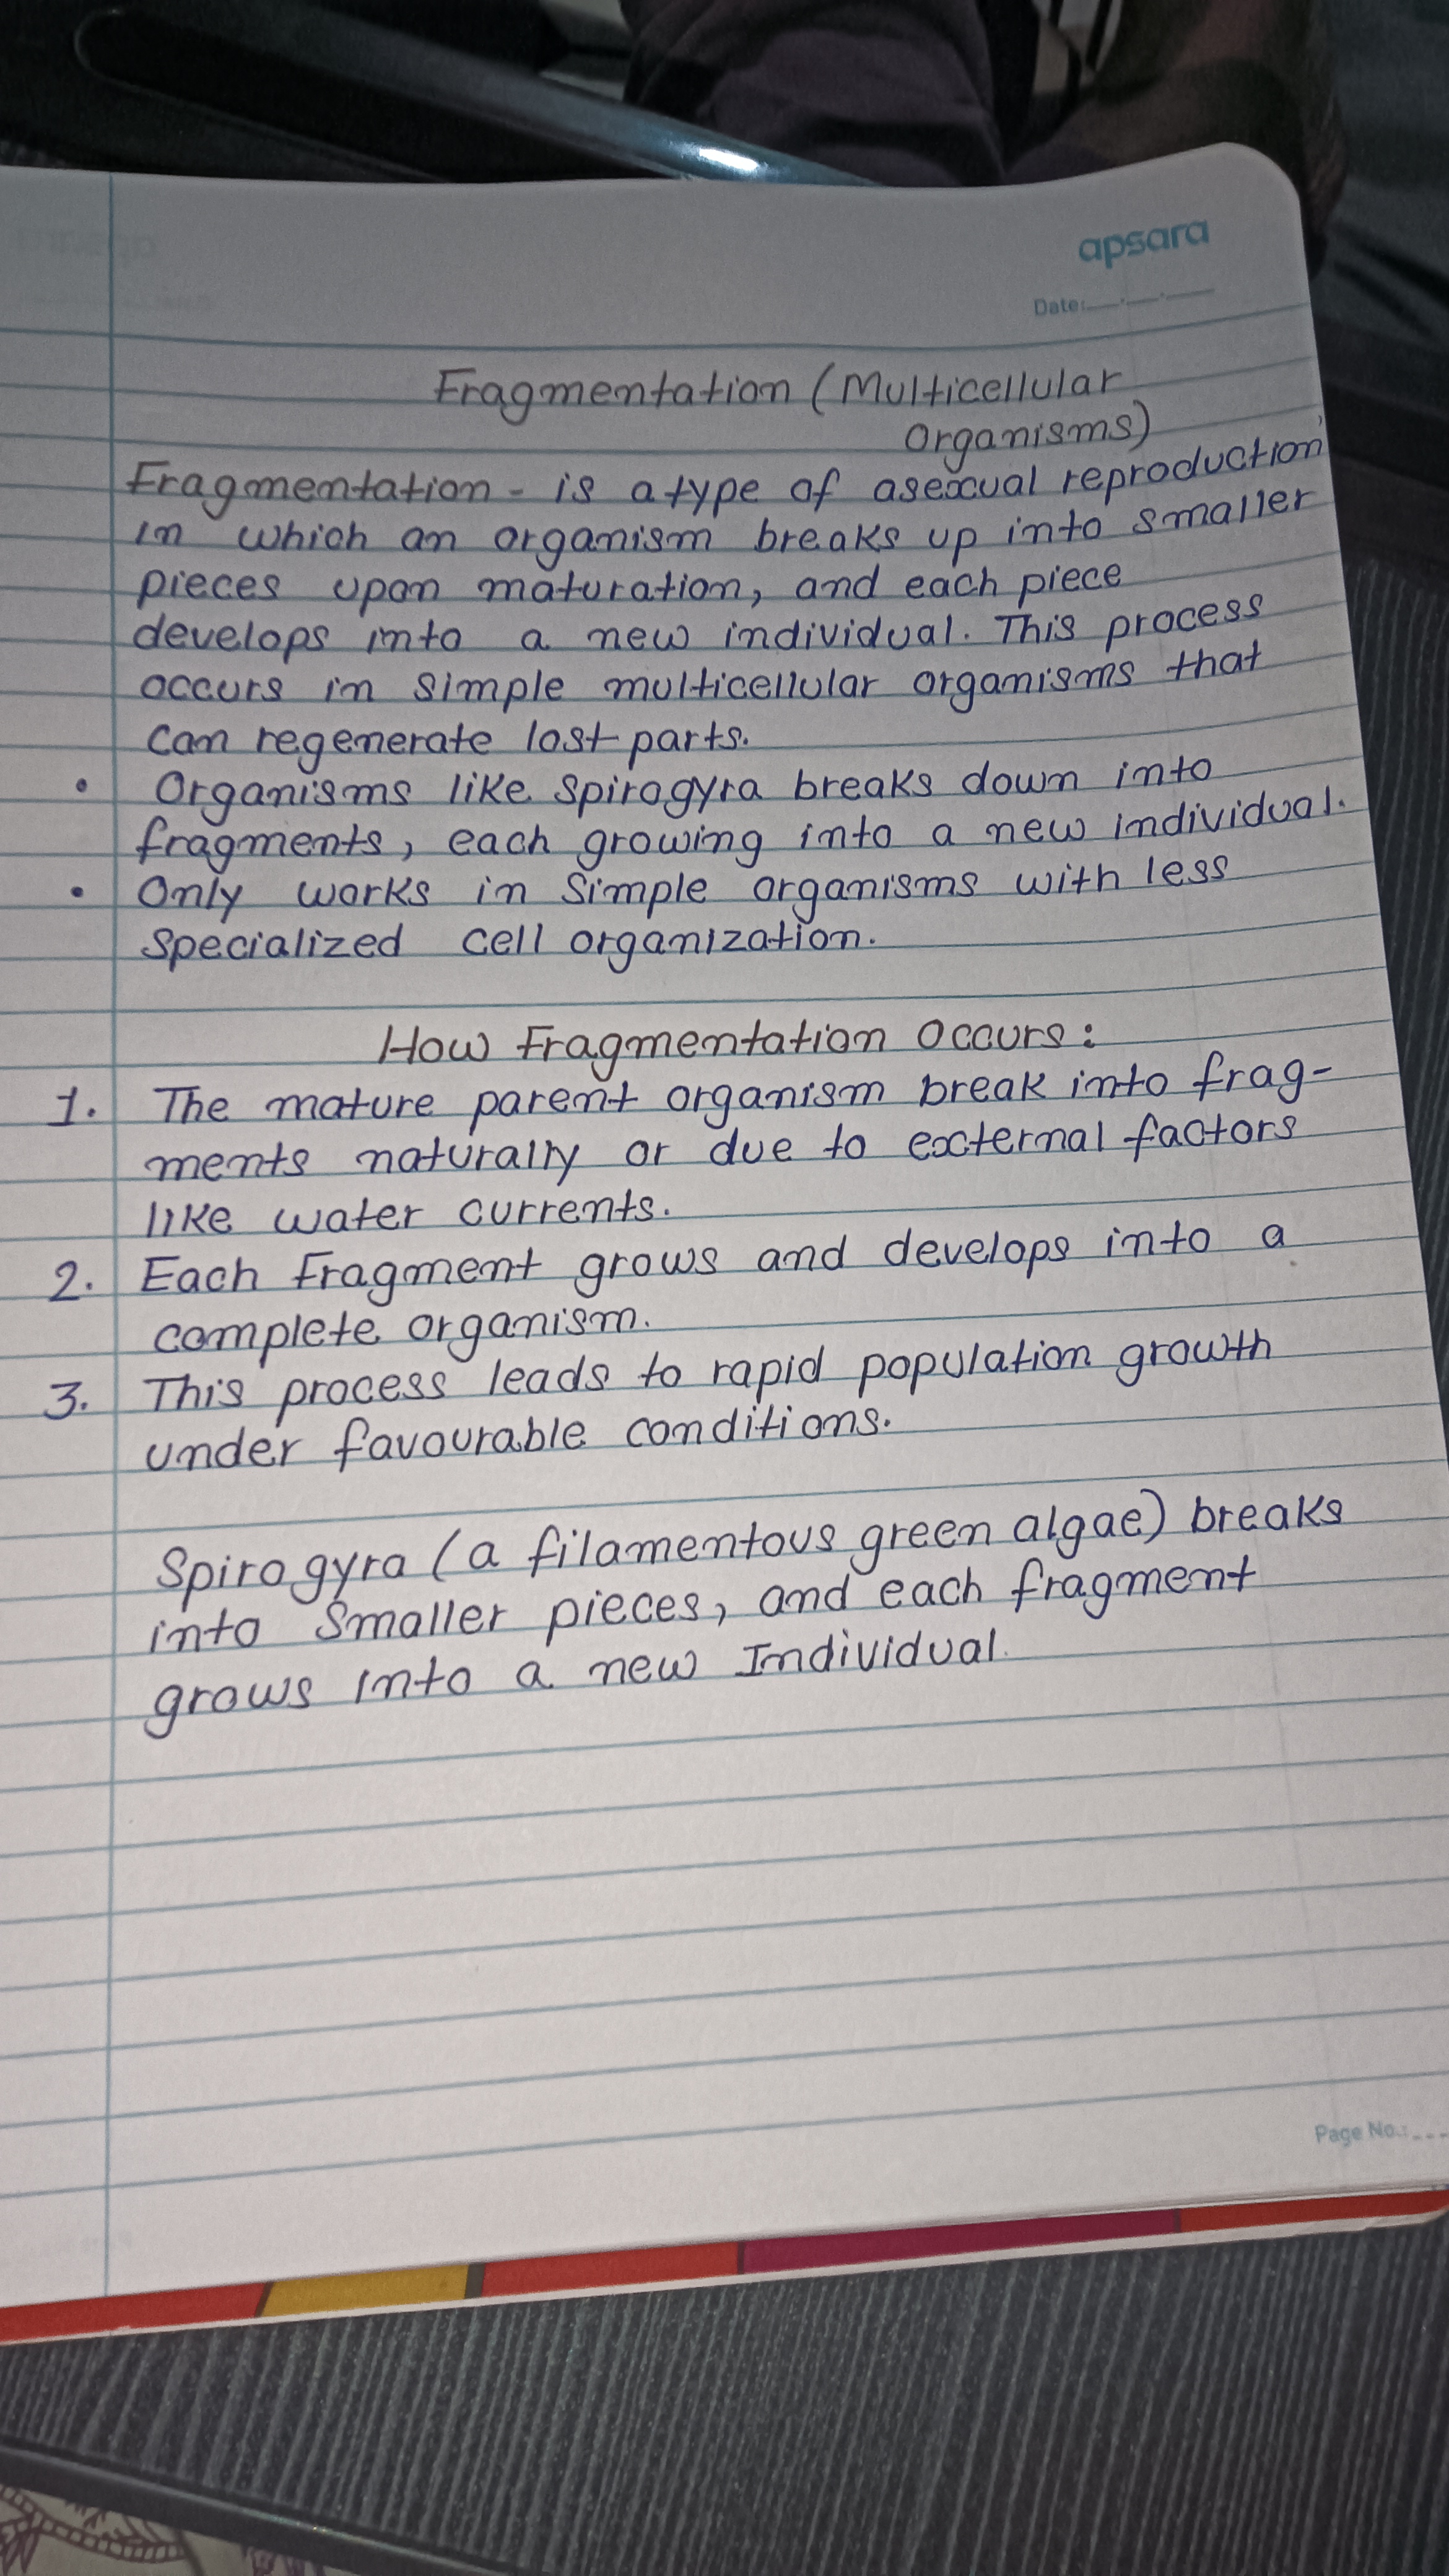 apsara
Date:
Fragmentation (Multicellular
Organisms)
Fragmentation - is a type of asexual reproduction
in which an organism breaks up into smaller
pieces upon maturation, and each piece
develops into a new individual. This process
occurs in simple multicellular organisms that
can regenerate lost parts.
• Organisms like Spirogyra breaks down into
fragments, each growing into a new individual.
• Only works in Simple organisms with less
Specialized cell organization.
How Fragmentation Occurs:
1. The mature parent organism break into frag-
ments naturally or due to external factors
like water currents.
2. Each Fragment grows and develops into a
complete organism.
3. This process leads to rapid population growth
under favourable conditions.
Spirogyra (a filamentous green algae) breaks
into Smaller pieces, and each fragment
grows into a new Individual.
Page No.: